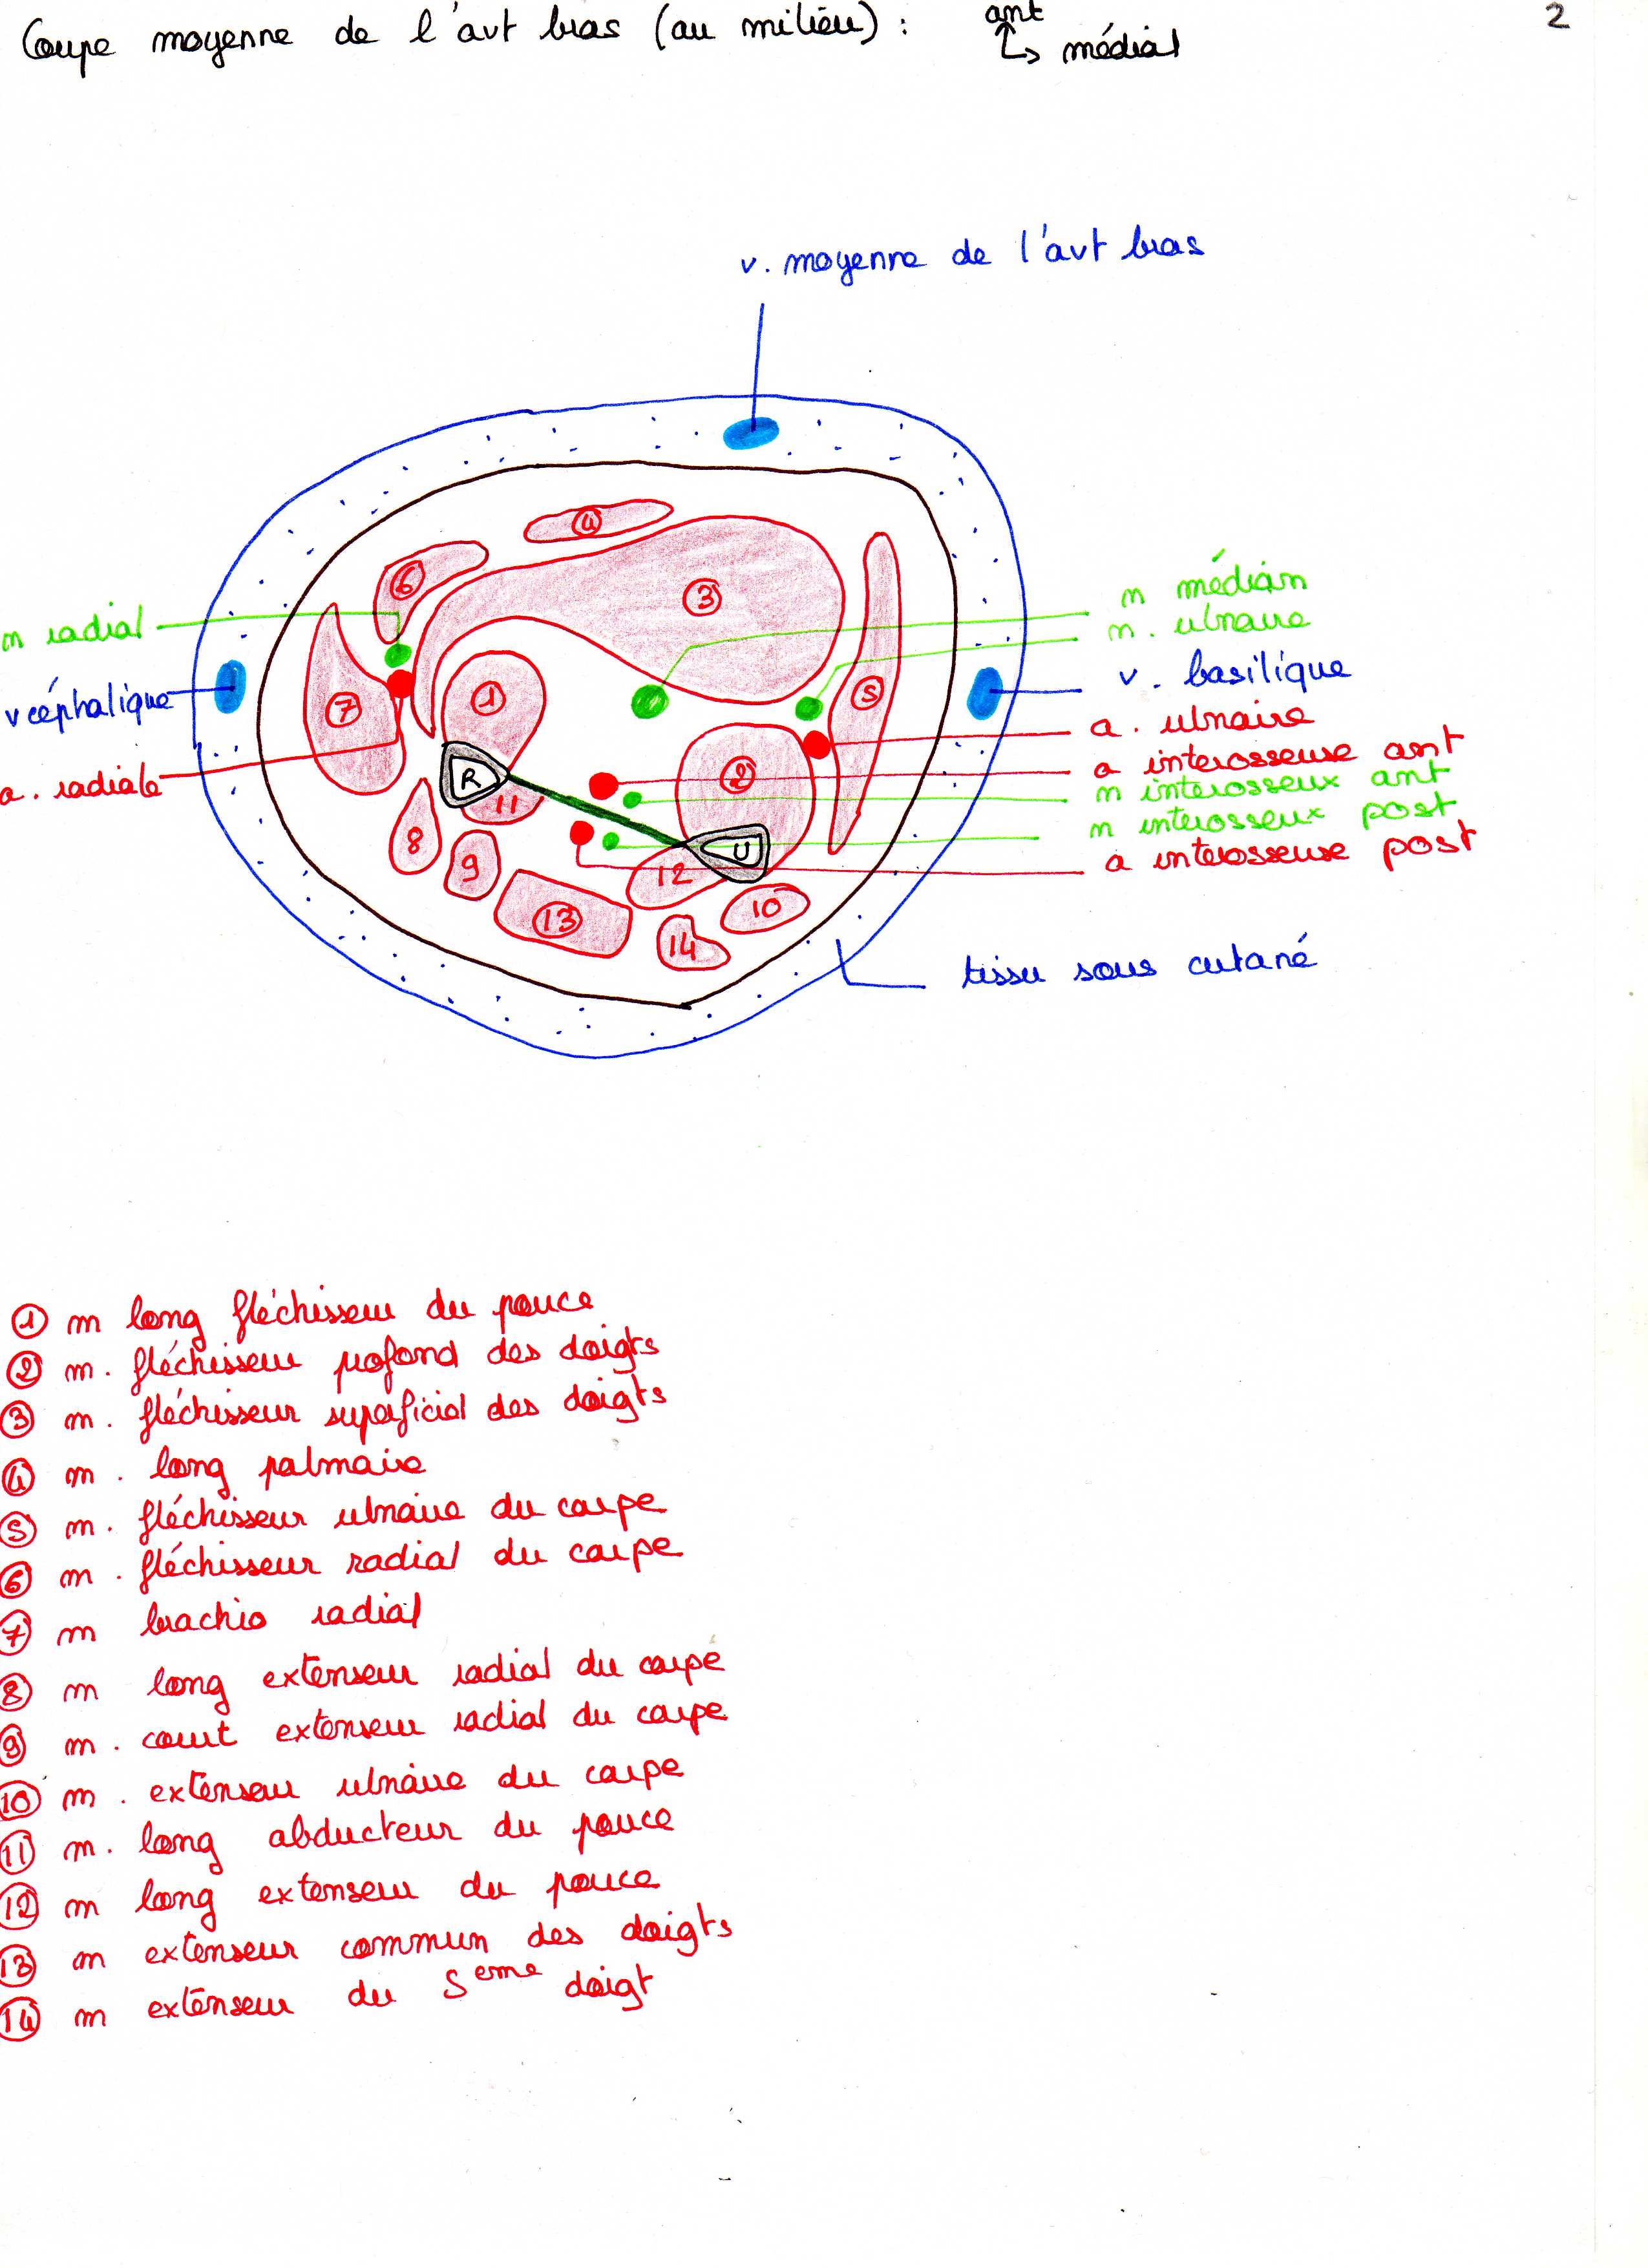 Coupe moyenne de l'avt bras (au milieu) :
ant
médial
2
v. moyenne de l'avt bras
n radial
v céphalique
a. radiale
n médian
n. ulnaire
v. basilique
a. ulnaire
a interosseuse ant
n interosseux ant
n interosseux post
a interosseuse post
tissu sous cutané
4
6
3
7
1
5
2
R
11
U
8
9
12
10
13
14
1 m long fléchisseur du pouce
2 m. fléchisseur profond des doigts
3 m. fléchisseur superficiel des doigts
4 m. long palmaire
5 m. fléchisseur ulnaire du carpe
6 m. fléchisseur radial du carpe
7 m brachio radial
8 m long extenseur radial du carpe
9 m. court extenseur radial du carpe
10 m. extenseur ulnaire du carpe
11 m. long abducteur du pouce
12 m long extenseur du pouce
13 m extenseur commun des doigts
14 m extenseur du 5eme doigt